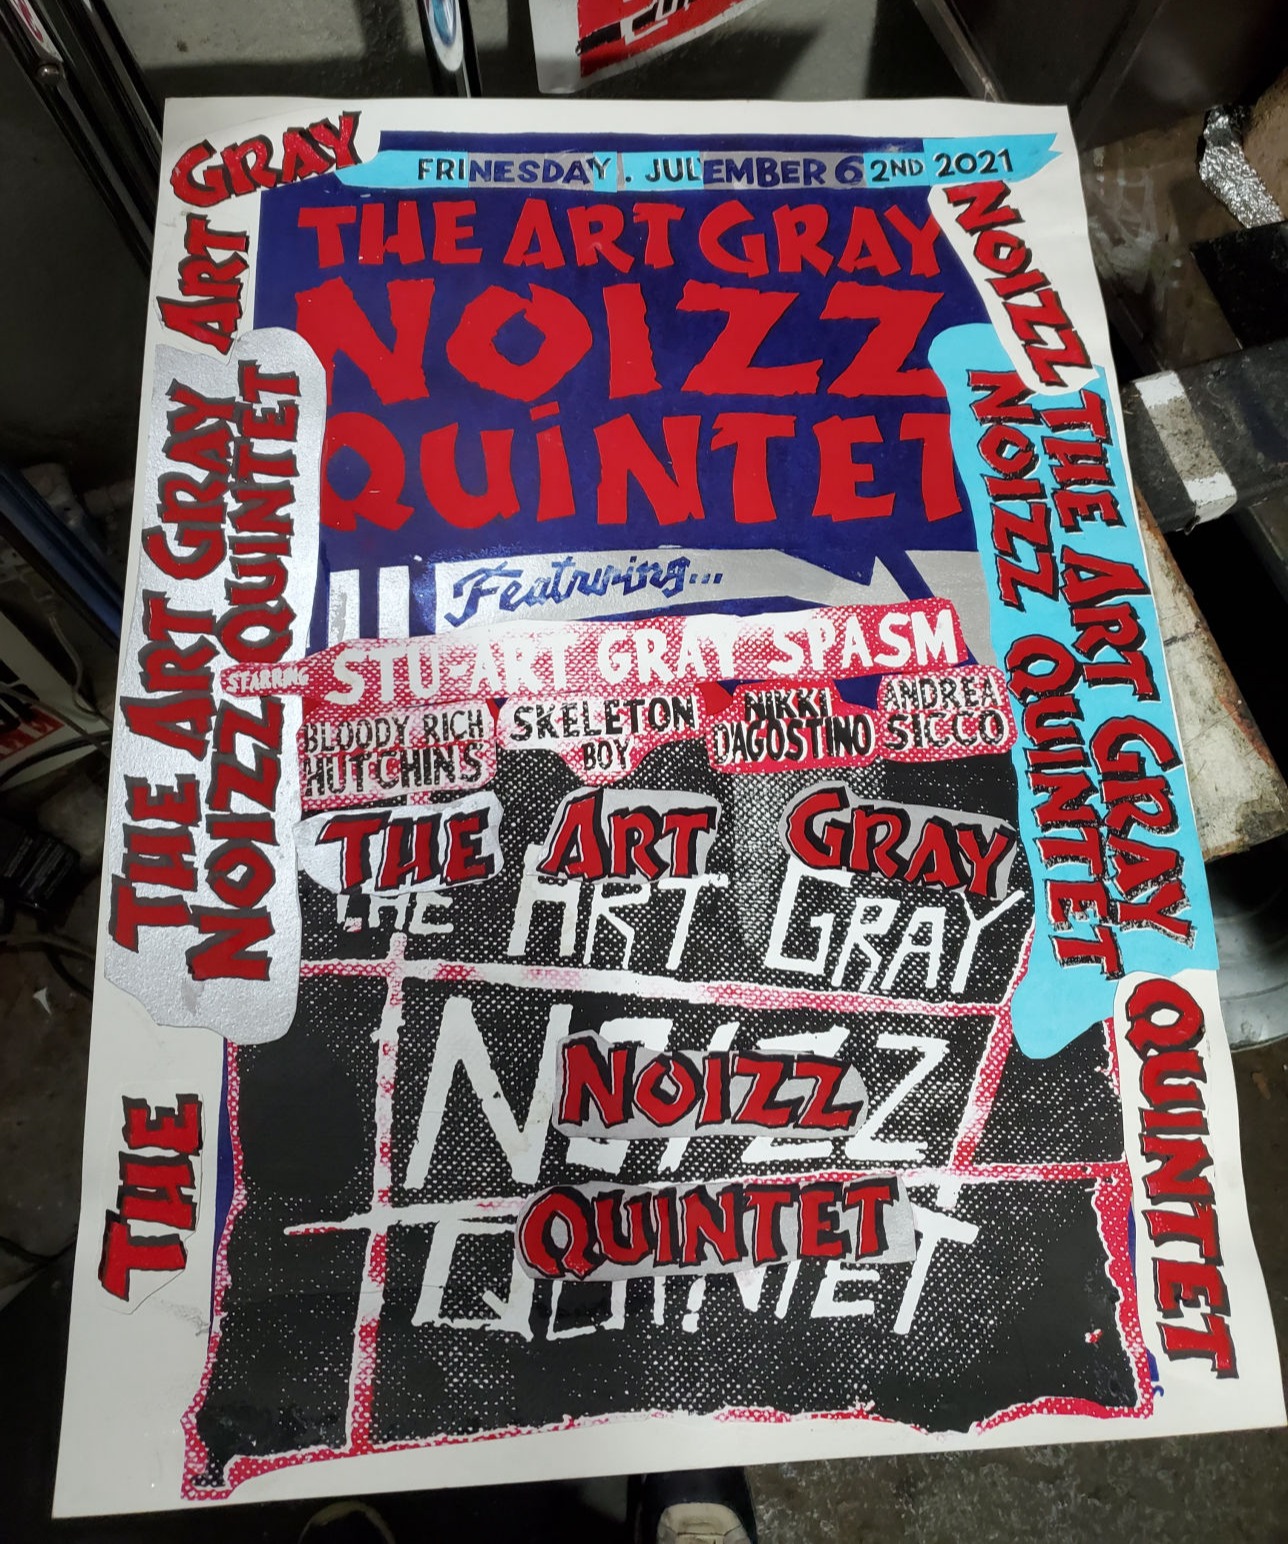 FRINESDAY. JUL'EMBER 6 2ND 2021
THE ART GRAY
NOIZZ
QUiNTET
Featuring...
STARRING STU-ART GRAY SPASM
BLOODY RICH HUTCHINS
SKELETON BOY
NIKKI D'AGOSTINO
ANDREA SICCO
THE ART GRAY
THE ART GRAY
NOIZZ
NOIZZ
QUINTET
QUINTET
THE
ART
GRAY
THE ART GRAY
NOIZZ QUINTET
NOIZZ
THE ART GRAY
NOIZZ QUINTET
QUINTET